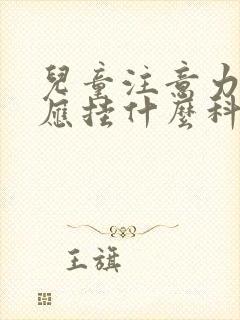 兒童注意力
應挂什麼科
王旗